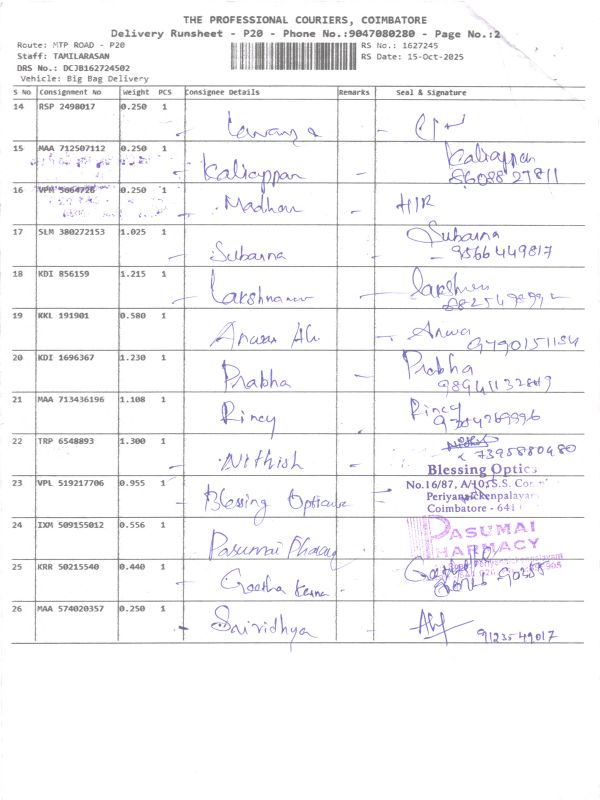 THE PROFESSIONAL COURIERS, COIMBATORE
Delivery Runsheet - P20 - Phone No.:9047080280 - Page No.:2
Route: MTP ROAD - P20
RS No.: 1627245
Staff: TAMILARASAN
RS Date: 15-Oct-2025
DRS No.: DCJB162724502
Vehicle: Big Bag Delivery
S No Consignment No Weight PCS Consignee Details Remarks Seal & Signature
14 RSP 2498017 0.250 1
15 MAA 712507112 0.250 1
Kaliappan - Kaliappan
8608827811
16 VPM 5064728 0.250 1
Madhan - HIR
17 SLM 380272153 1.025 1
Subarna - Subarna
9566449817
18 KDI 856159 1.215 1
19 KKL 191901 0.580 1
Anwar Ali - Anwa
9790151134
20 KDI 1696367 1.230 1
Prabha - Prabha
21 MAA 713436196 1.108 1
Rincy Rincy
22 TRP 6548893 1.300 1
Nithish - Nithish
7395880480
23 VPL 519217706 0.955 1
Blessing Opticals
Blessing Optics
No.16/87, A/105 S.S.
Coimbatore - 641
24 IXM 509155012 0.556 1
Pasumai
PASUMAI
PHARMACY
25 KRR 50215540 0.440 1
Geetha
26 MAA 574020357 0.250 1
Srividhya -
9123549017